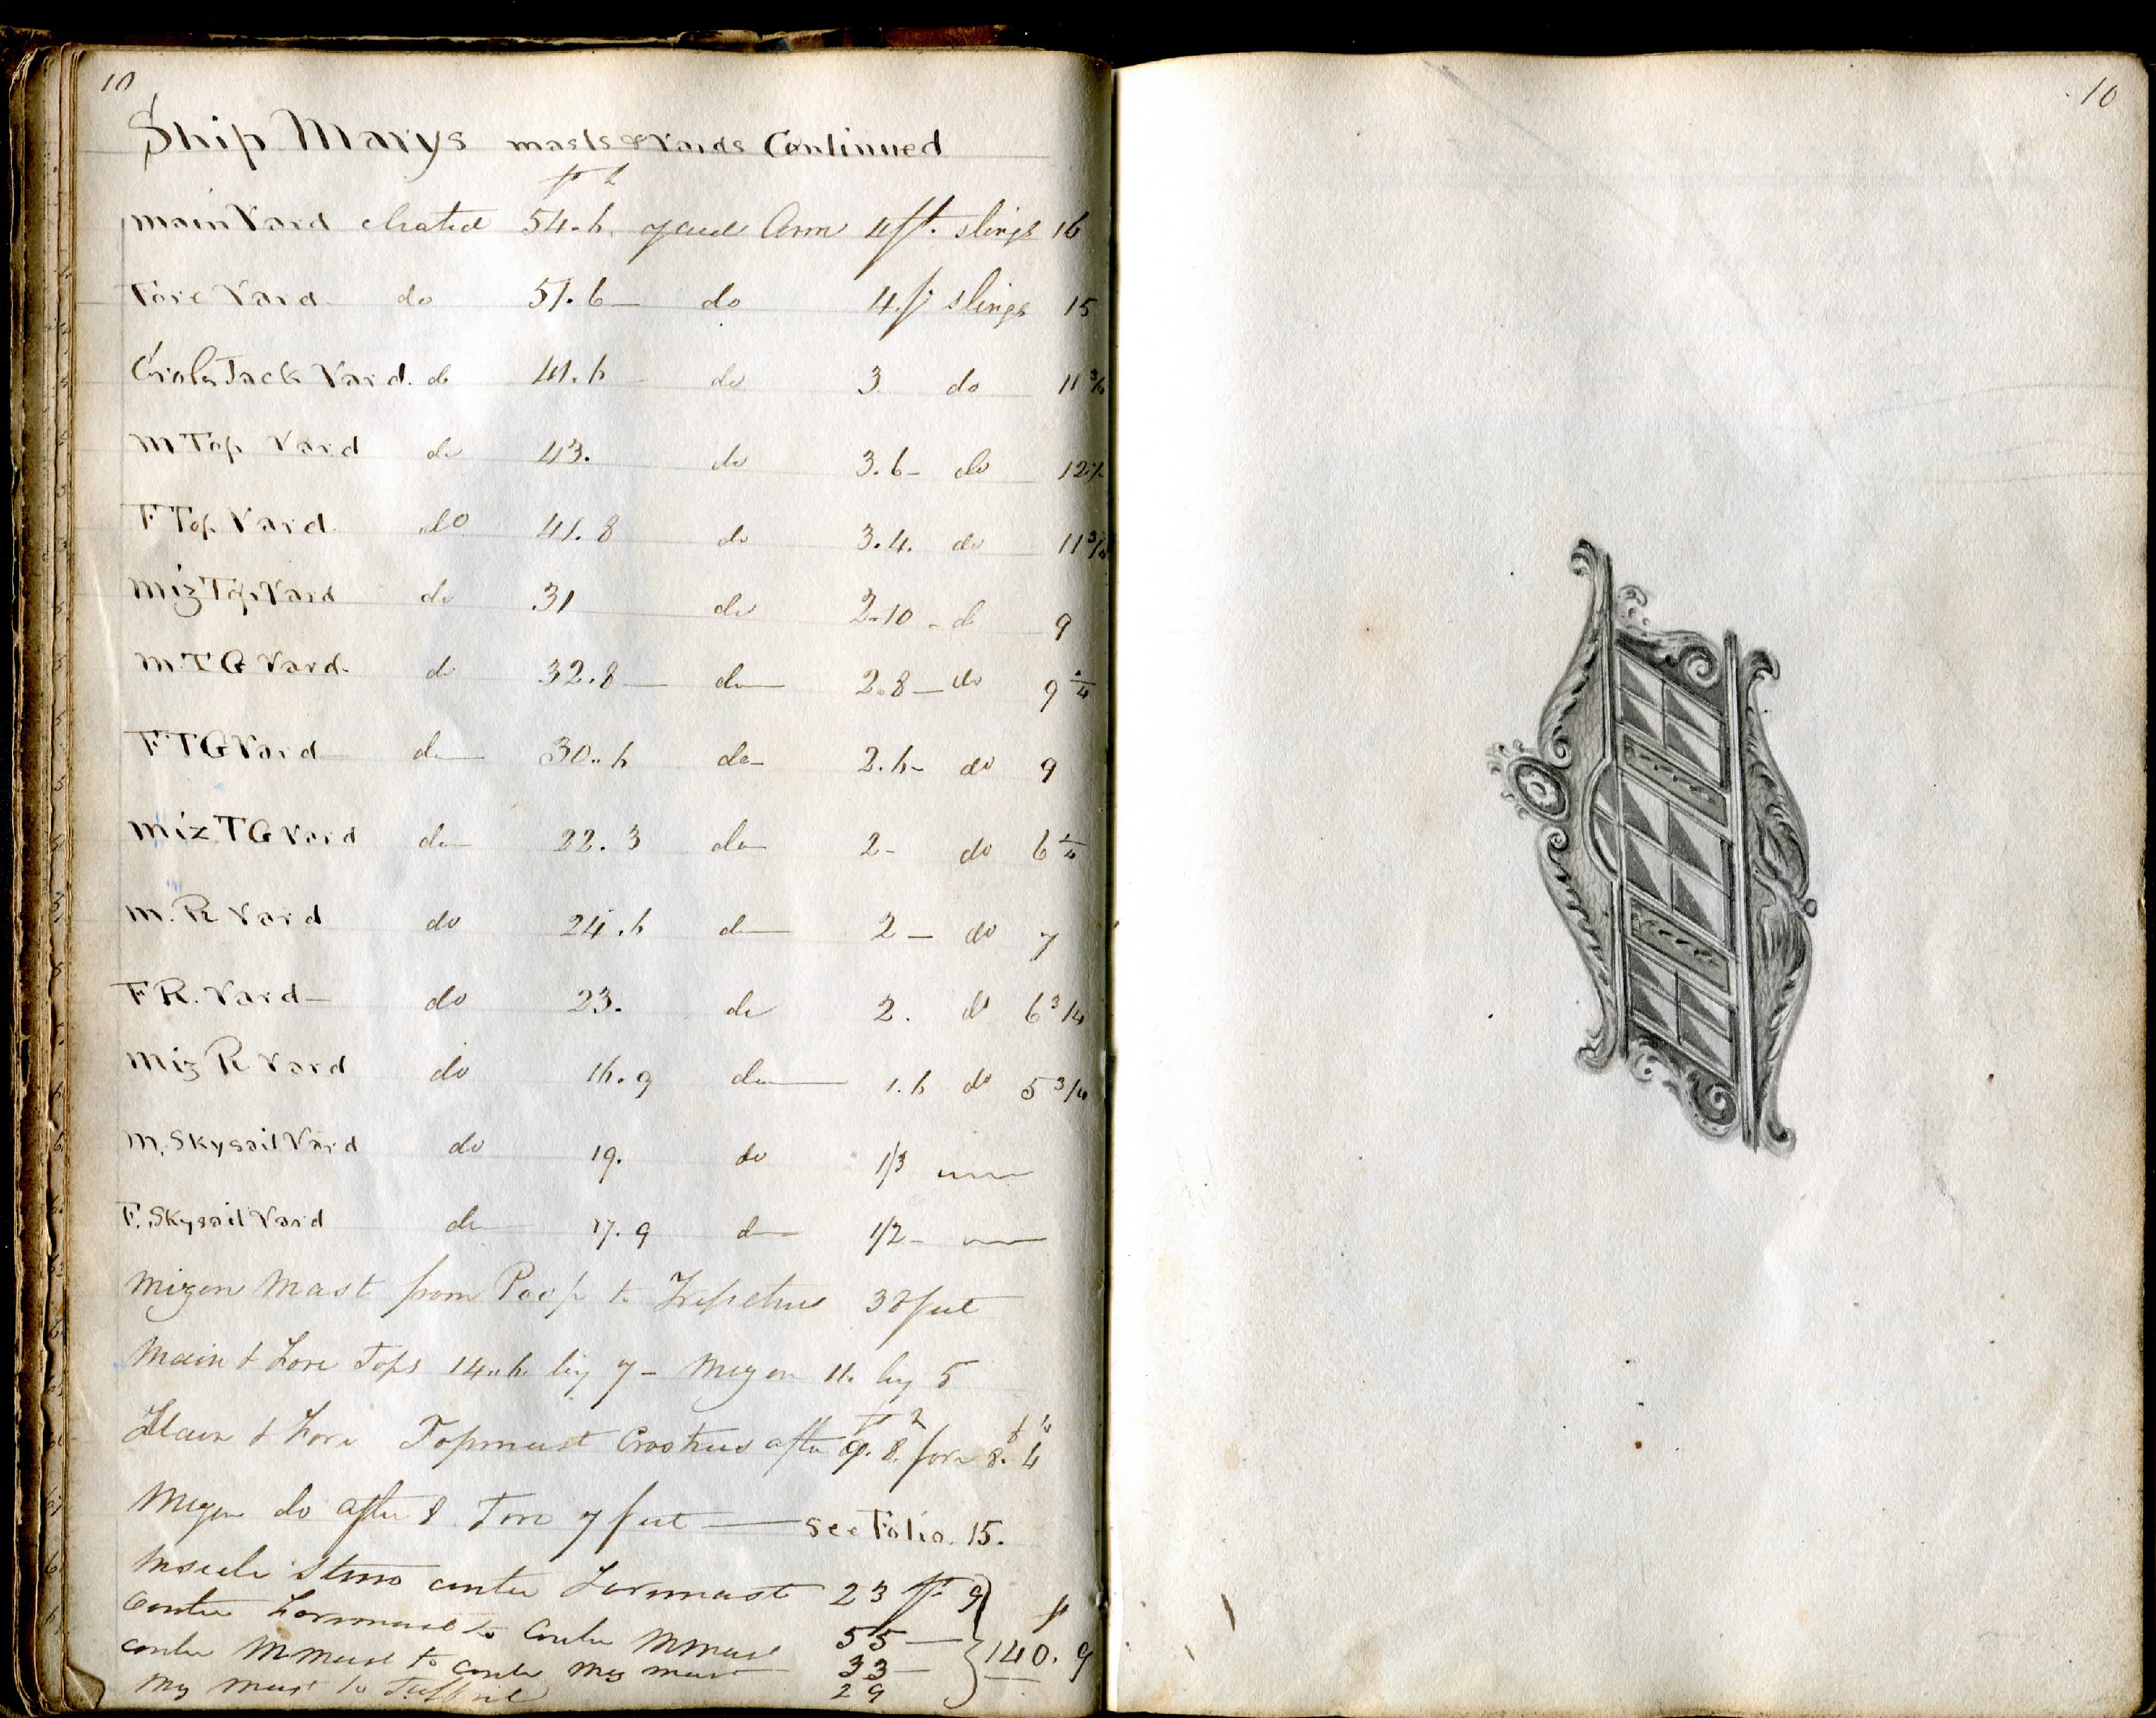 10
Ship Marys masts & Yards Continued
main Yard cleated 54.6 yard Arm 4 ft. slings 16
Fore Yard do 51.6 do 4 f slings 15
Cross Jack Yard. do 41.6 do 3 do 11 3/4
M Top Yard do 43. do 3.6 do
F Top Yard do 41.8 do 3.4. do 11 3/4
Miz Top Yard do 31 do 2.10 do 9
M. T G Yard. do 32.8 do 2.8 do 9
F T G Yard do 30..6 do 2.6 do 9
Miz T G Yard do 22.3 do 2 do 6
M. R Yard do 24.6 do 2 do 7
F R. Yard do 23. do 2. do 6 3/4
Miz R Yard do 16.9 do 1.6 do 5 3/4
M. Skysail Yard do 19. do 1/3
F. Skysail Yard do 17.9 do 1/2
Mizen Mast from Poop to 38 feet
Main & Fore Tops 14..6 by 7 - Mizen 11. by 5
Main & Fore Topmast Crostrees after 9.8. fore 8.4
Mizen do after 8 Fore 7 feet see Folio. 15.
Inside Stem center Foremast 23 ft 9
Center Foremast to Center M mast 55
center M mast to center Miz mast 33 140.9
Miz mast to Taffrail 29
10